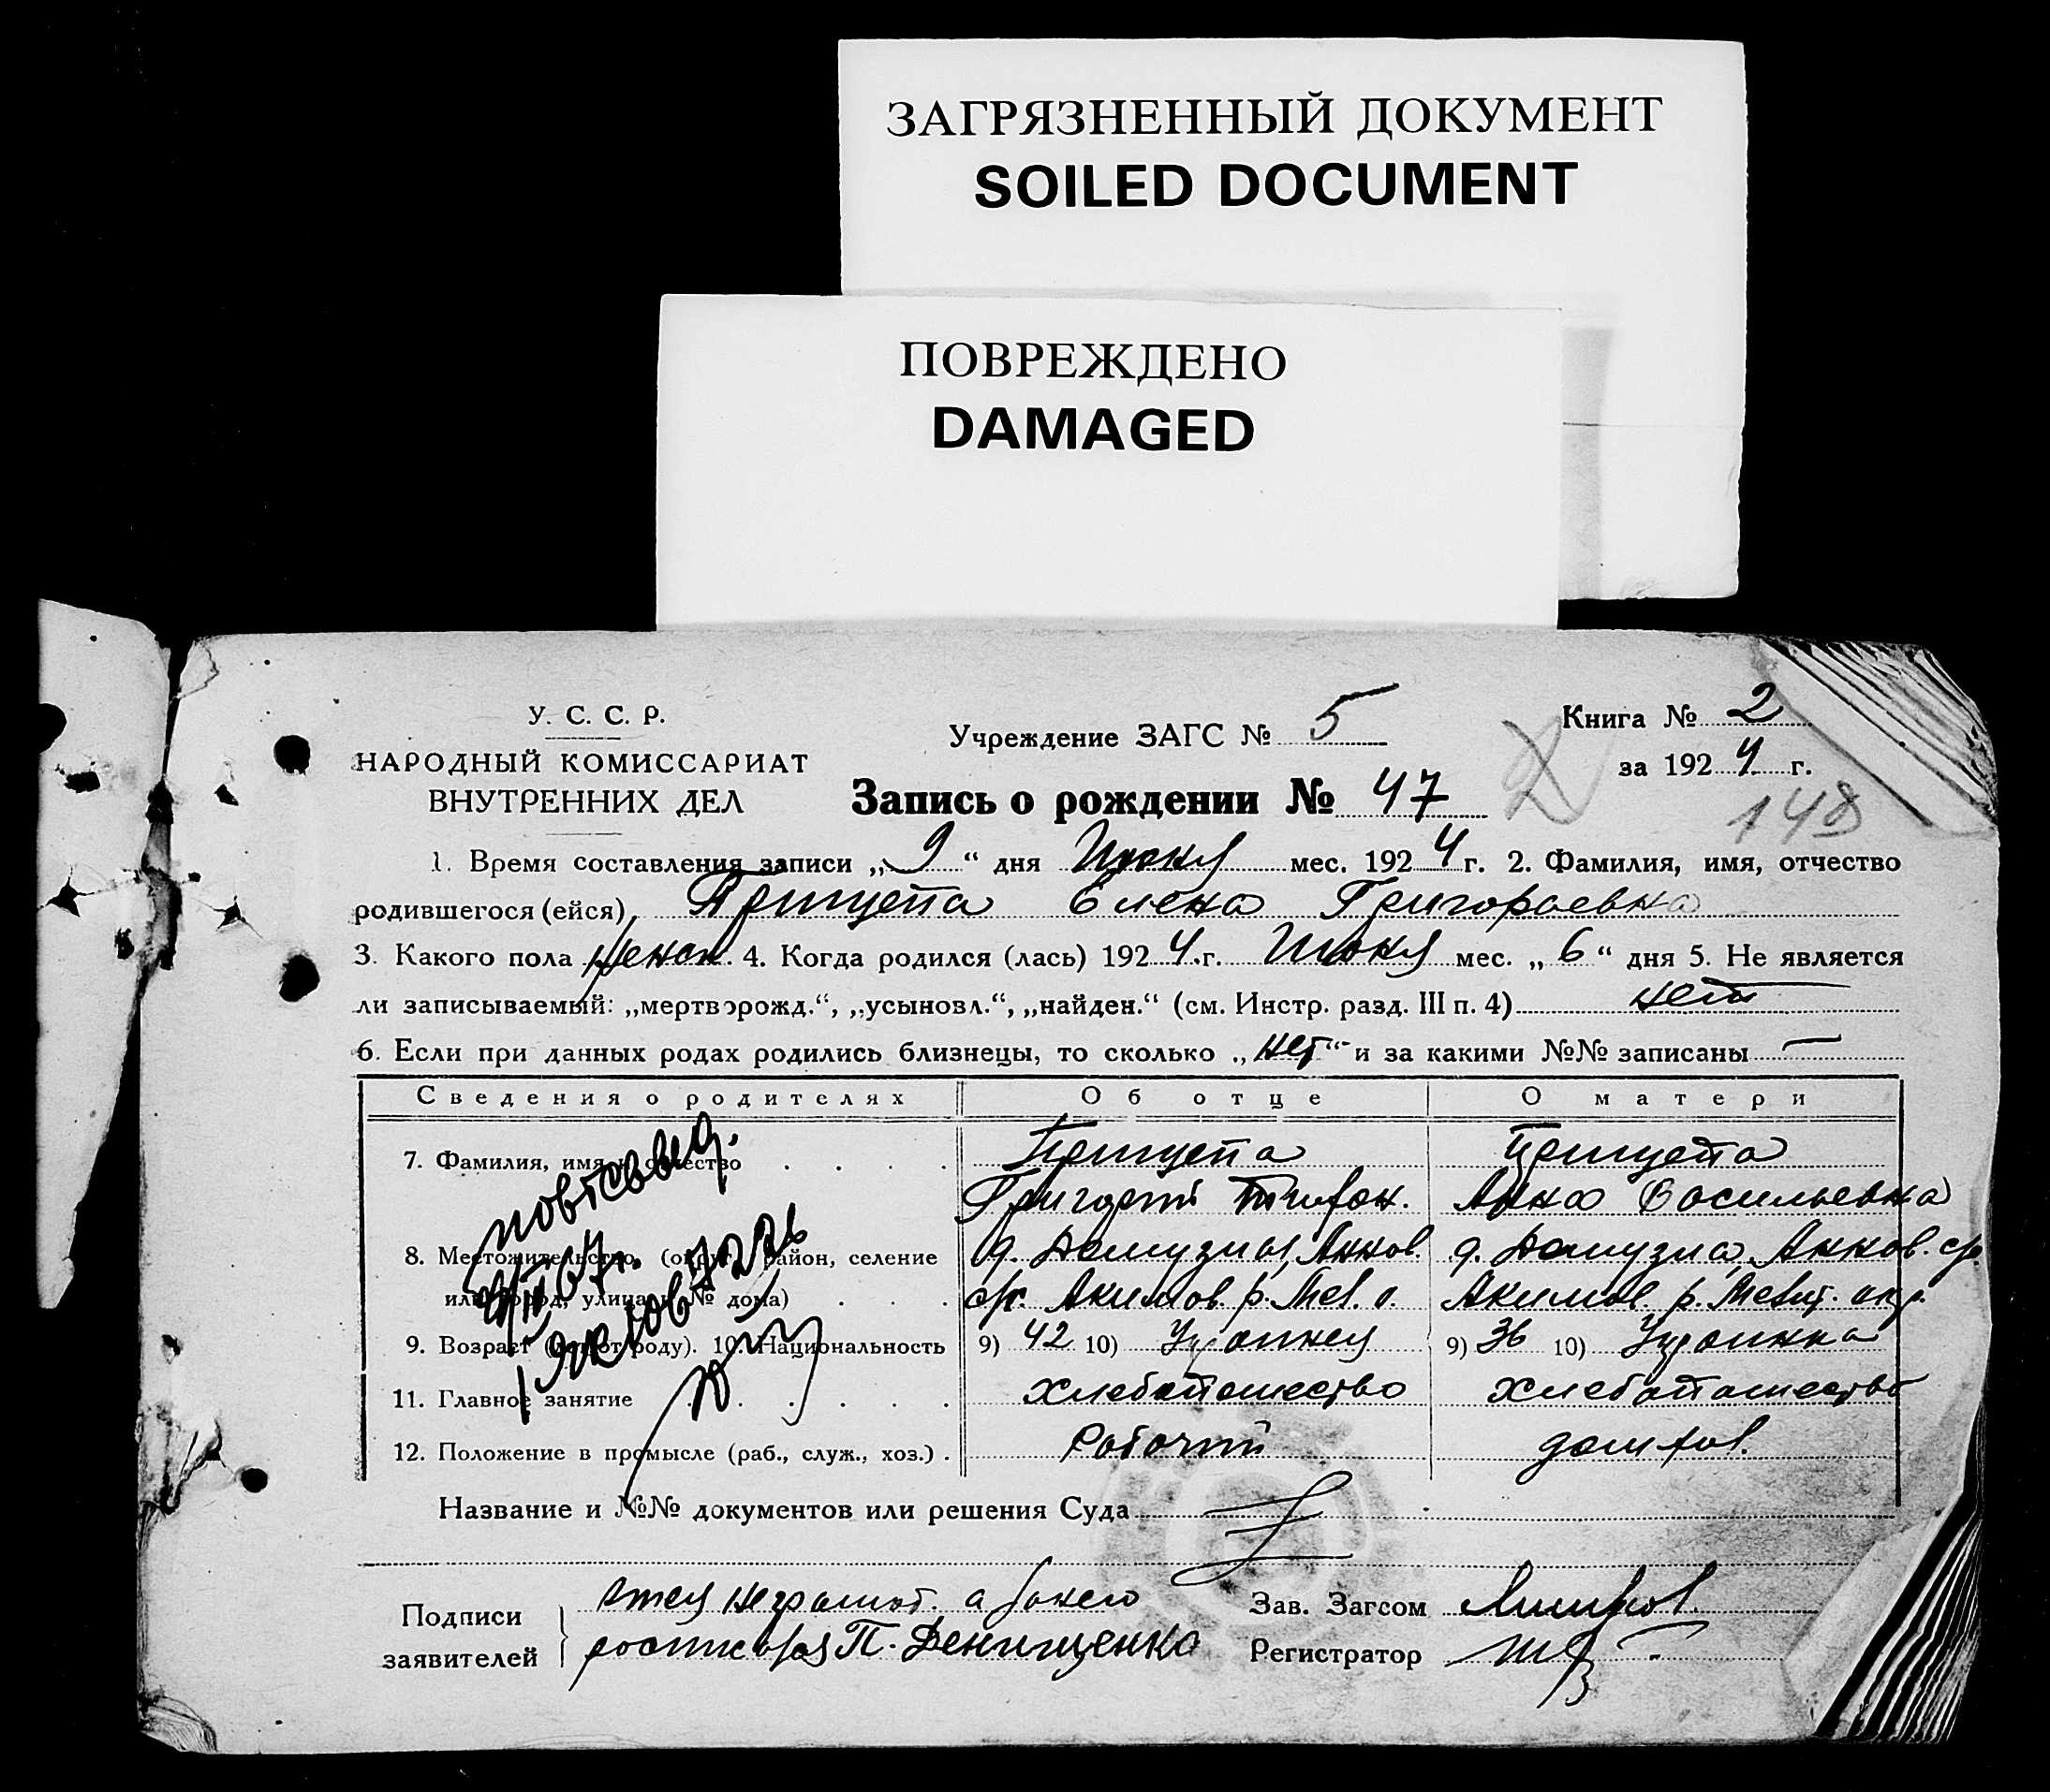 ЗАГРЯЗНЕННЫЙ ДОКУМЕНТ
SOILED DOCUMENT
ПОВРЕЖДЕНО
DAMAGED
У. С. С. Р.
НАРОДНЫЙ КОМИССАРИАТ
ВНУТРЕННИХ ДЕЛ
Учреждение ЗАГС № 5
Книга № 2
за 1924 г.
Запись о рождении № 47
148
1. Время составления записи „9“ дня Июня мес. 1924 г. 2. Фамилия, имя, отчество
родившегося (ейся) Прищепа Елена Григорьевна
3. Какого пола женск. 4. Когда родился (лась) 1924 г. Июня мес. „6“ дня 5. Не является
ли записываемый: „мертворожд.“, „усыновл.“, „найден.“ (см. Инстр. разд. III п. 4) нет
6. Если при данных родах родились близнецы, то сколько „нет“ и за какими №№ записаны —
Сведения о родителях Об отце О матери
7. Фамилия, имя и отчество Прищепа Прищепа
Григорий Анна Васильевна
8. Местожительство (округ, район, селение д. Аннов. д. Аннов. с/р.
или город, улица и № дома) с/р. Акимов. р. Мел. о. Акимов. р. Мелит. окр.
9. Возраст (лет от роду). 10. Национальность 9) 42 10) Украинец 9) 36 10) Украинка
11. Главное занятие хлебопашество хлебопашество
12. Положение в промысле (раб., служ., хоз.) Рабочий домхоз.
Название и №№ документов или решения Суда
Подписи
заявителей
Отец неграмот. а за него
росписался П. Денищенко
Зав. Загсом
Регистратор